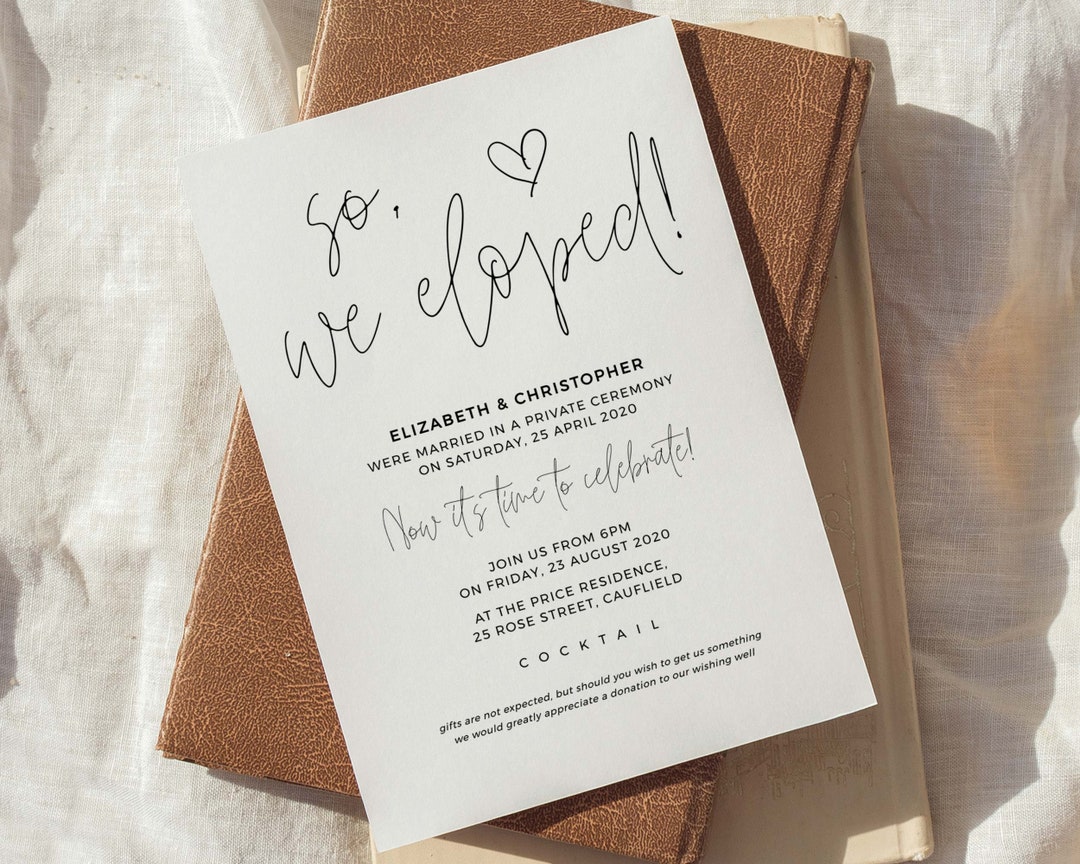 so,
we eloped!
ELIZABETH & CHRISTOPHER
WERE MARRIED IN A PRIVATE CEREMONY
ON SATURDAY, 25 APRIL 2020
Now it's time to celebrate!
JOIN US FROM 6PM
ON FRIDAY, 23 AUGUST 2020
AT THE PRICE RESIDENCE,
25 ROSE STREET, CAUFLIELD
COCKTAIL
gifts are not expected, but should you wish to get us something
we would greatly appreciate a donation to our wishing well